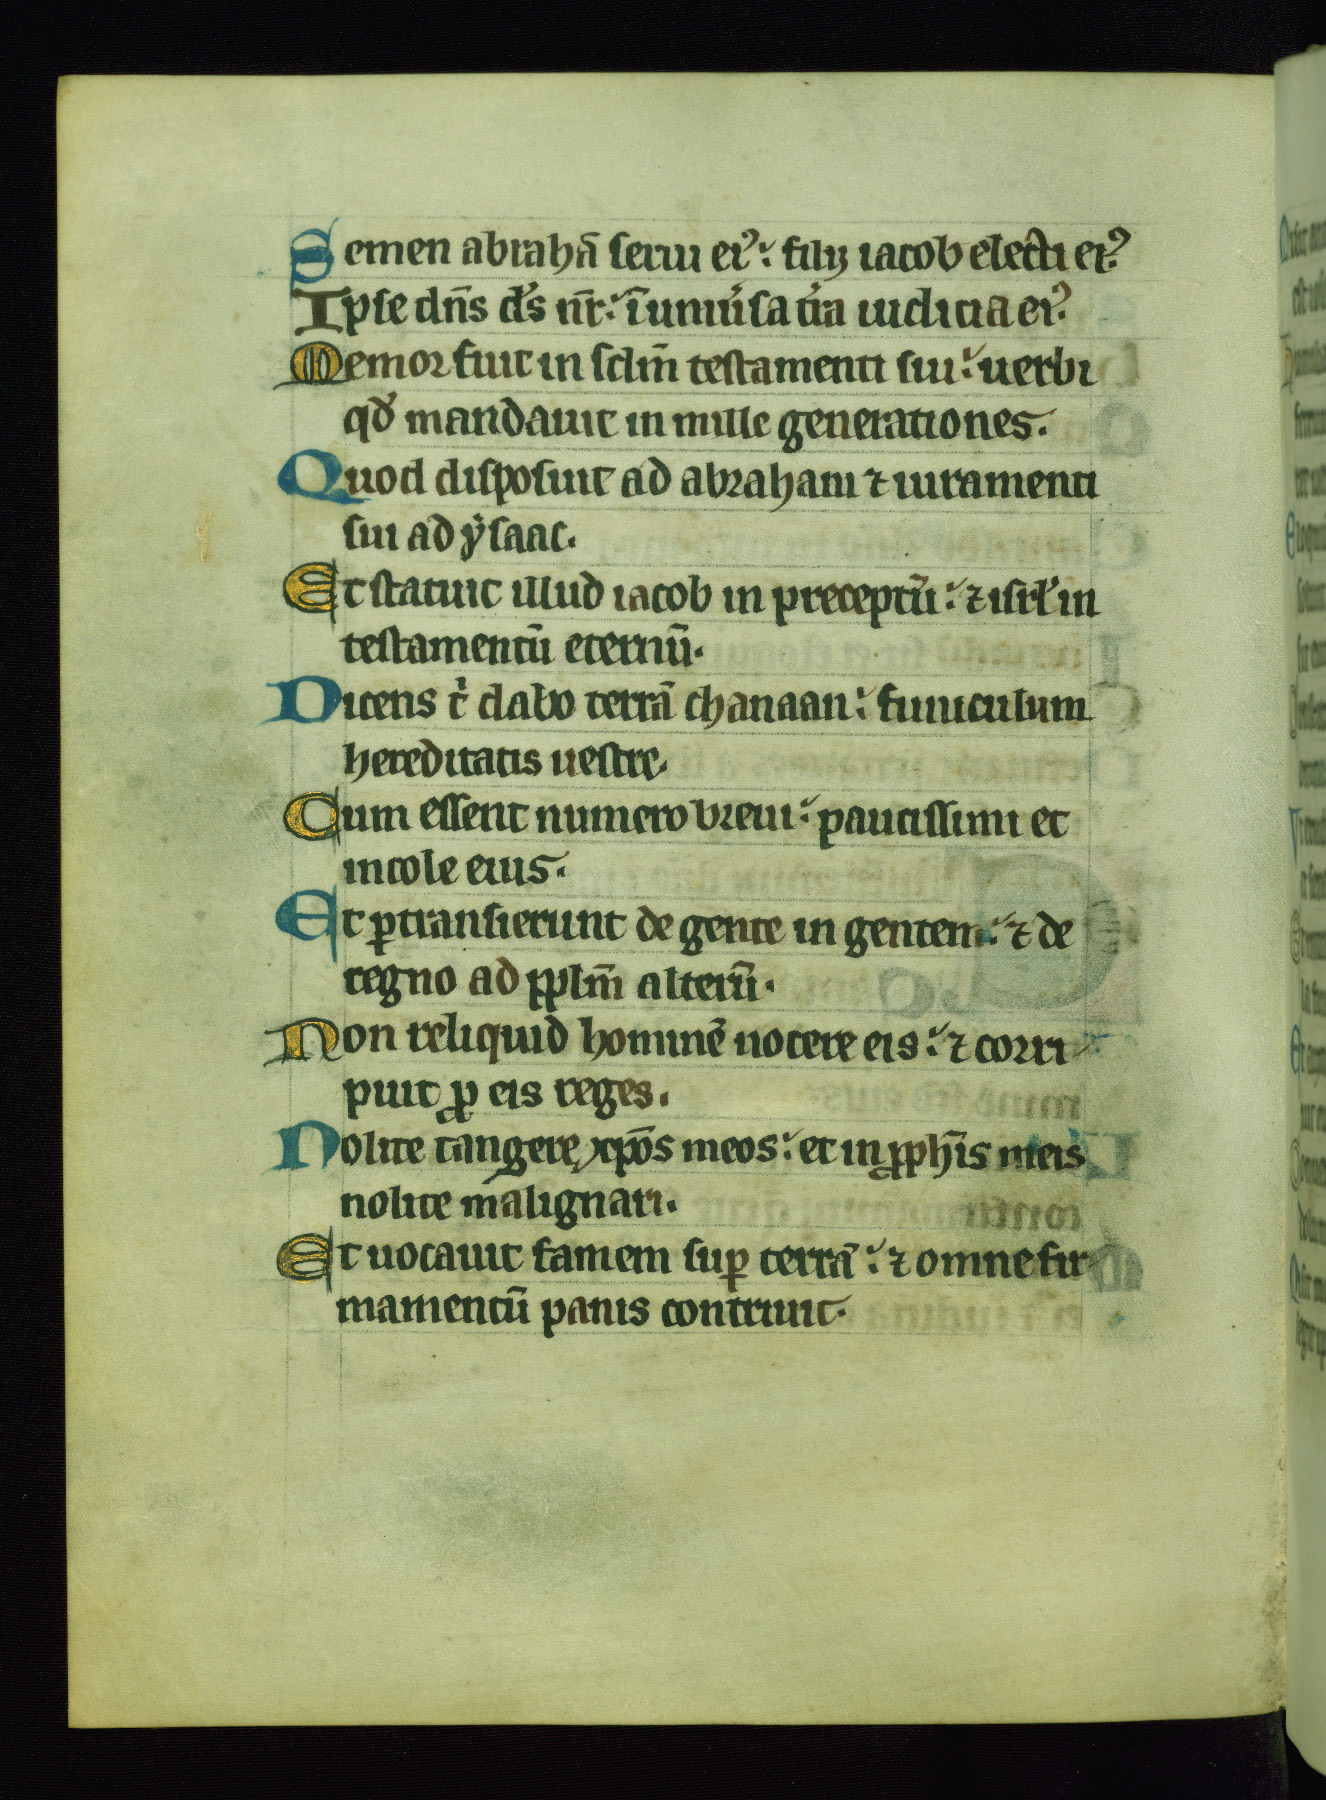 Semen abrahā serui ei⁹: filij iacob electi ei⁹
Ipse dn̄s ds̄ nr̄: ī uniu̾sa tr̄a iudicia ei⁹.
Memor fuit in sclm̄ testamenti sui: uerbi
qd̾ mandauit in mille generationes.
Quod disposuit ad abraham ⁊ iuramenti
sui ad ẏsaac.
Et statuit illud iacob in preceptū: ⁊ isrl̾ in
testamentū eternū.
Dicens tⁱ dabo terrā chanaan: funiculum
hereditatis uestre.
Cum essent numero breui: paucissimi et
incole eius.
Et ꝑtransierunt de gente in gentem: ⁊ de
regno ad pplm̄ alterū.
Non reliquid hominē nocere eis: ⁊ corri
puit ꝓ eis reges.
Nolite tangere xpōs meos: et in ꝓph̄is meis
nolite malignari.
Et uocauit famem suꝑ terrā: ⁊ omne fir
mamentū panis contriuit.